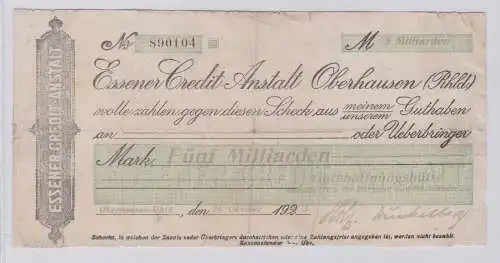 No 890104 M 5 Milliarden
ESSENER CREDIT-ANSTALT
Essener Credit-Anstalt Oberhausen (Rhld)
wolle zahlen gegen diesen Scheck aus meinem Guthaben
unserem
an oder Ueberbringer
Mark Fünf Milliarden
Gutehoffnungshütte
Oberhausen-Rhld., den Oktober 192
Schecks, in welchen der Zusatz „oder Überbringer“ durchstrichen oder eine Zahlungsfrist angegeben ist, werden nicht bezahlt.